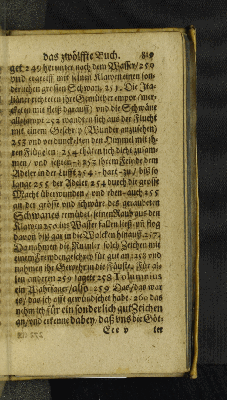 das zwölffte Buch. 819
get 249 herunter nach dem Wasser/250
und ergreiff mit seinen Klawen einen son-
derlichen grossen Schwan, 251. Die Ita-
liäner richteten ihre Gemühter empor/mer-
alle sampt 252 wandten sich aus der Flucht
mit einem Geschr. y (Wunder anzusehen)
253 und verdunckelten den Himmel mit ih-
ren Flügelen. 254 thäten sich dicht zusam-
men/ und setzten ihrem Feinde dem
Adeler in der Lufft 254 hart zu/ biß so
lange 255 der Adeler 254 durch die grosse
Macht überwunden/ und 255
an der grösse und schwäre des geraubeten
Schwanes ermüdet, seinen Raub aus den
Klawen ins Wasser fallen ließ und flog
davon biß gar in die Wolcken hinauß. 257.
Da nahmen die Rutuler solch Zeichen mit
einem Freudengeschrey für gut an 258 und
nahmen ihr Gewehr in die Fäuste. Für al-
len anderen 259 sagete 258 Tolumnius
ein Wahrsager/also: 259 Das/das war
es/ das ich offt gewündschet habe. 260 das
nehm ich für ein sonderlich gut Zeichen
an/und erkenne dabey, daß uns die Göt-
Eee v ter